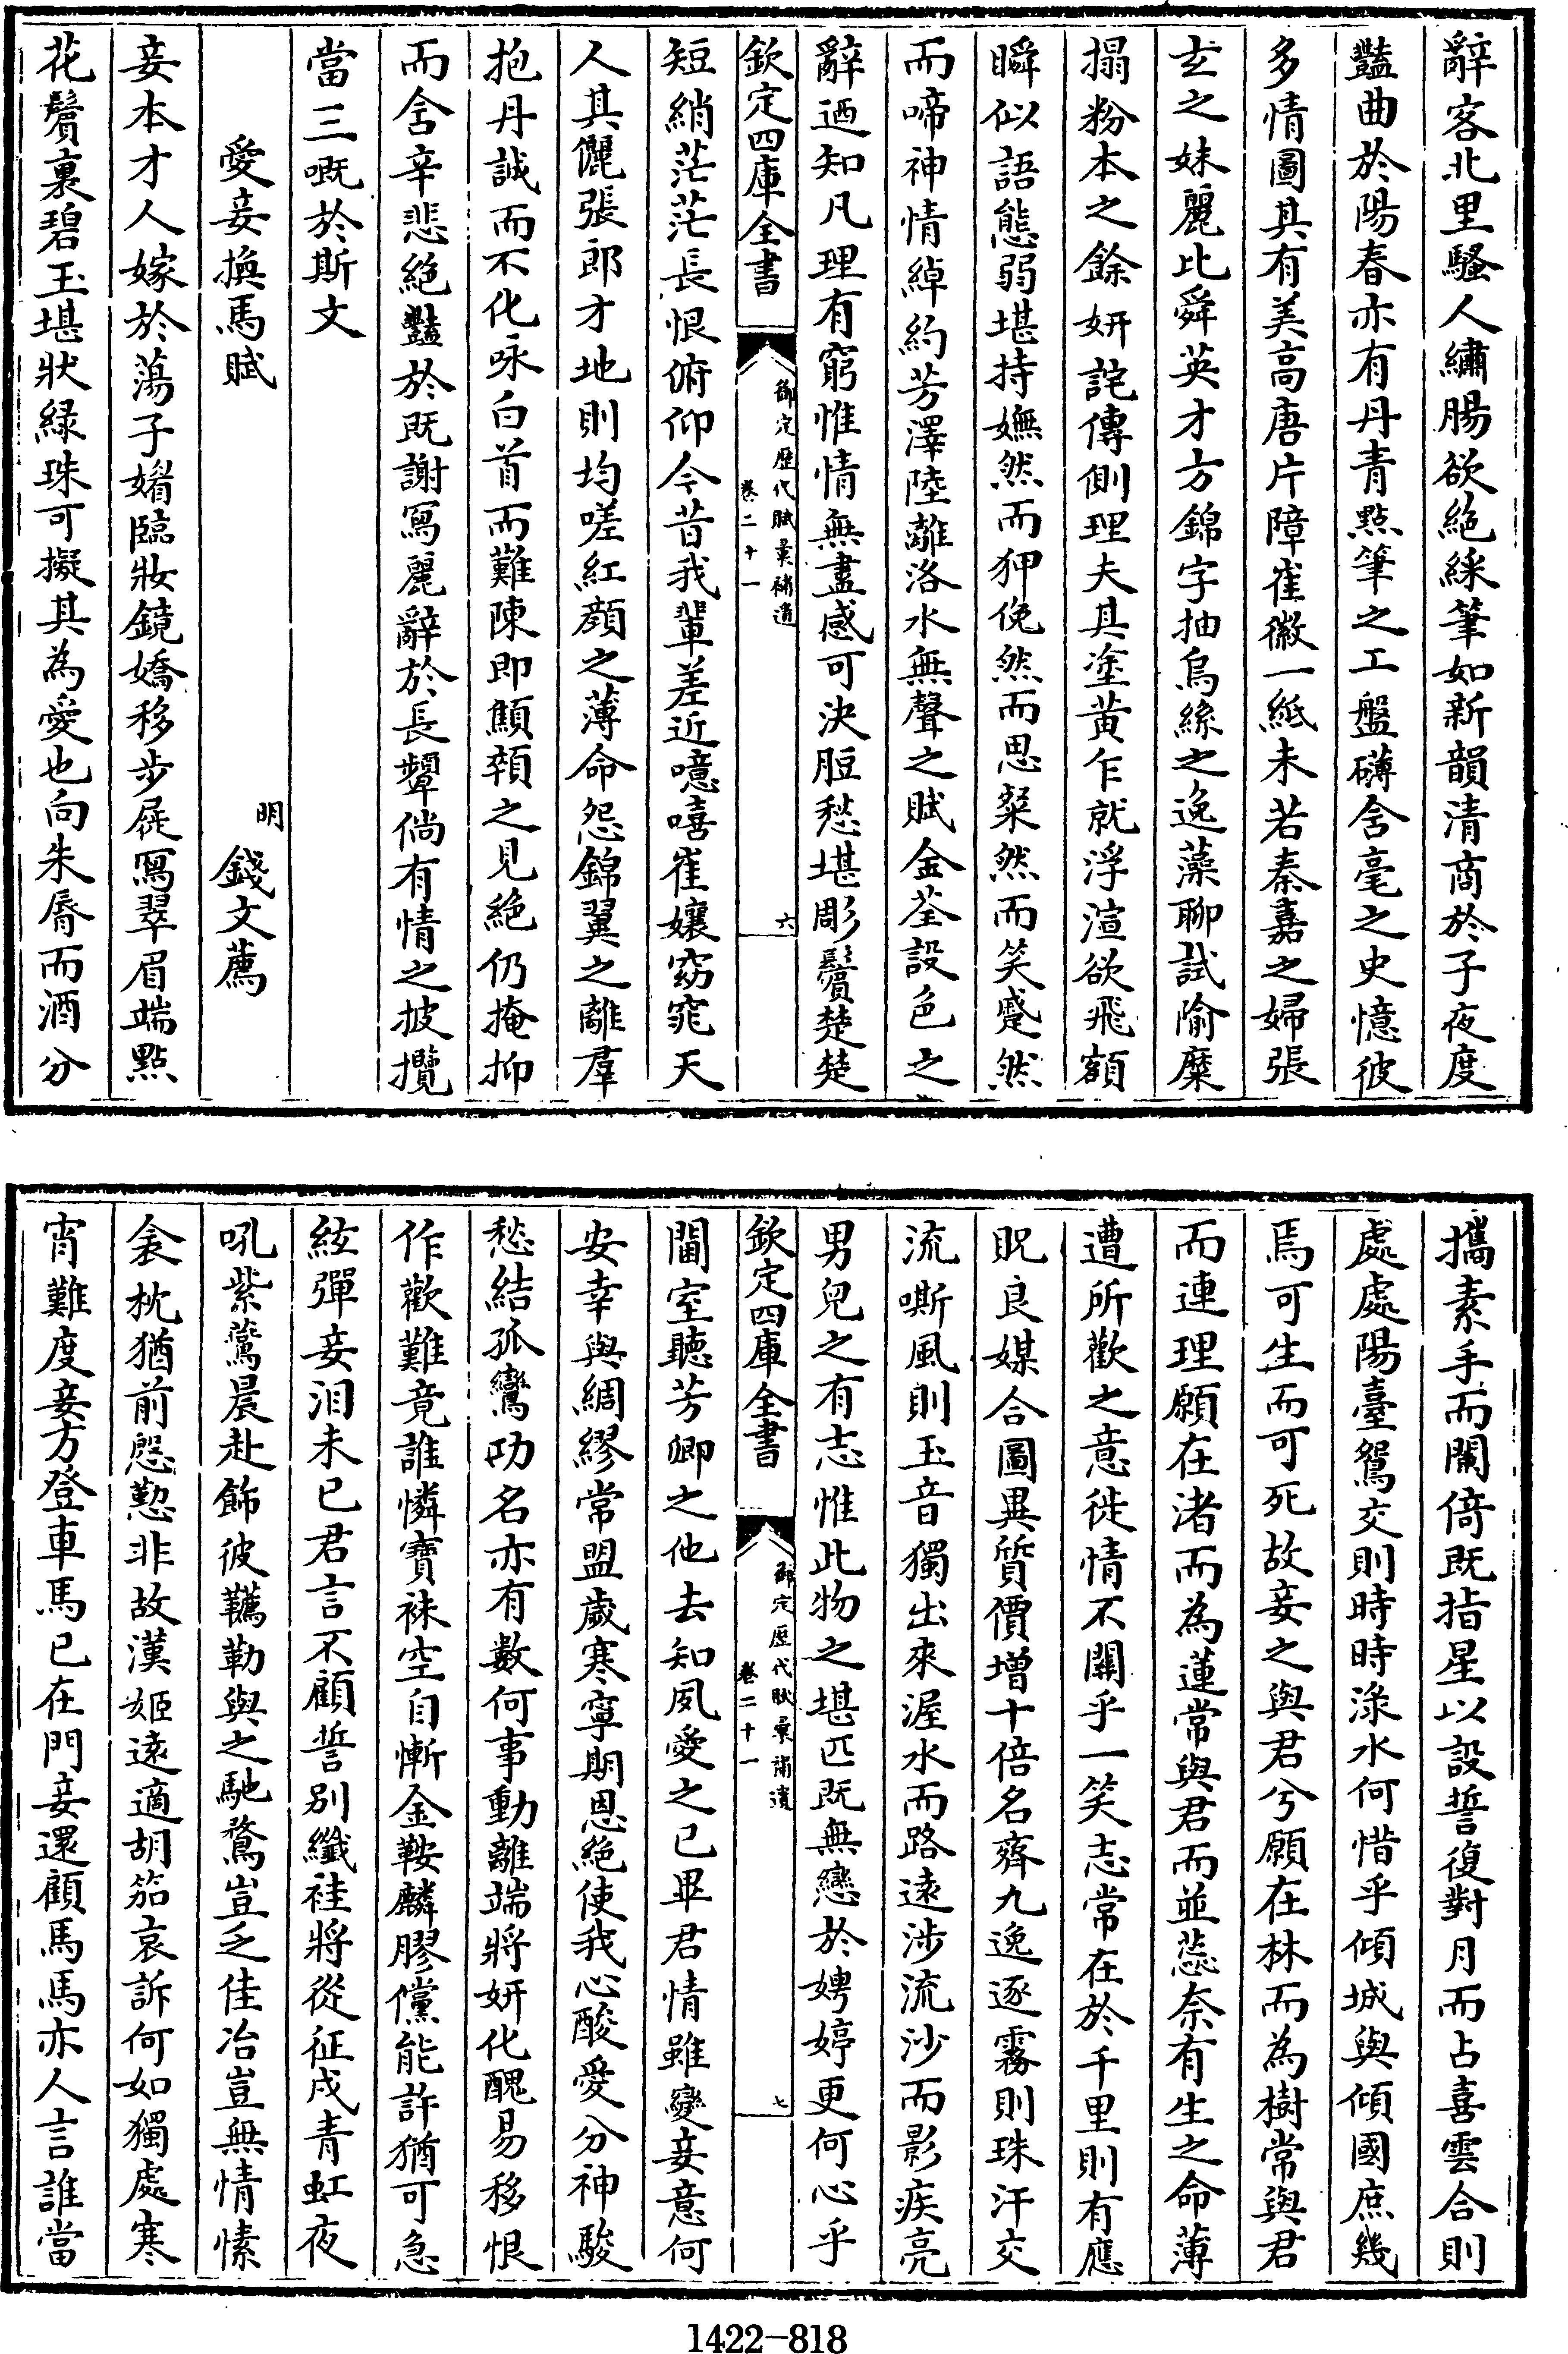 辭客北里騷人繡腸欲絶綵筆如新韻清商於子夜度
豔曲於陽春亦有丹青點筆之工盤礴舍毫之史憶彼
多情圖其有美高唐片障崔徽一紙未若秦嘉之婦張
玄之妹麗比舜英才方錦字抽烏絲之逸藻聊試隃糜
搨粉本之餘妍詫傳側理夫其塗黃乍就浮渲欲飛額
瞬似語態弱堪持嫵然而狎俛然而思粲然而笑蹙然
而啼神情綽約芳澤陸離洛水無聲之賦金荃設色之
辭迺知凡理有窮惟情無盡感可決脰愁堪彫鬢楚楚
欽定四庫全書
御定歷代賦彙補遺
卷二十一
六
短綃茫茫長恨俯仰今昔我輩差近噫嘻崔孃窈窕天
人其儷張郎才地則均嗟紅顏之薄命怨錦翼之離羣
抱丹誠而不化咏白首而難陳即顦顇之見絶仍掩抑
而含辛悲絶豔於既謝寫麗辭於長顰倘有情之披攬
當三嘅於斯文
愛妾換馬賦
明
錢文薦
妾本才人嫁於蕩子媚臨妝鏡嬌移步屧寫翠眉端點
花鬢裏碧玉堪狀綠珠可擬其為愛也向朱脣而酒分
攜素手而闌倚既指星以設誓復對月而占喜雲合則
處處陽臺鴛交則時時淥水何惜乎傾城與傾國庶幾
焉可生而可死故妾之與君兮願在林而為樹常與君
而連理願在渚而為蓮常與君而並蕊奈有生之命薄
遭所歡之意徙情不關乎一笑志常在於千里則有應
貺良媒合圖異質價增十倍名齊九逸逐霧則珠汗交
流嘶風則玉音獨出來渥水而路遠涉流沙而影疾亮
男兒之有志惟此物之堪匹既無戀於娉婷更何心乎
欽定四庫全書
御定歷代賦彙補遺
卷二十一
七
閫室聽芳卿之他去知夙愛之已畢君情雖變妾意何
安幸與綢繆常盟歲寒寧期恩絶使我心酸愛分神駿
愁結孤鸞功名亦有數何事動離端將妍化醜易移恨
作歡難竟誰憐寶袜空自慚金鞍麟膠儻能許猶可急
絃彈妾淚未已君言不顧誓別纖袿將從征戍青虹夜
吼紫鶯晨赴飾彼韉勒與之馳騖豈乏佳冶豈無情愫
衾枕猶前慇懃非故漢姬遠適胡笳哀訴何如獨處寒
宵難度妾方登車馬已在門妾還顧馬馬亦人言誰當
1422—818